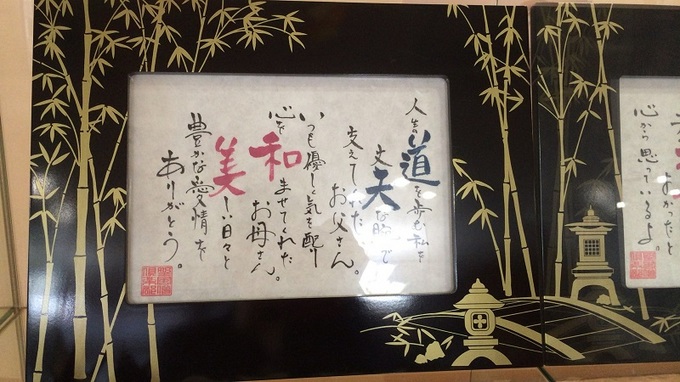 よかったと
心から思っているよ。
人生道を歩む私を
丈夫な胸で
支えてくれたお父さん。
いつも優しく気を配り
心を和ませてくれたお母さん。
美しい日々と
豊かな愛情を
ありがとう。